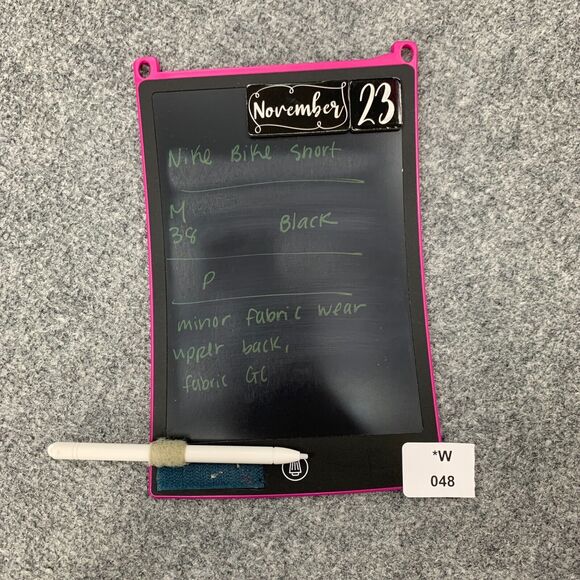 November 23
Nike Bike Short
M
38 Black
P
minor fabric wear
upper back,
fabric GC
*W
048